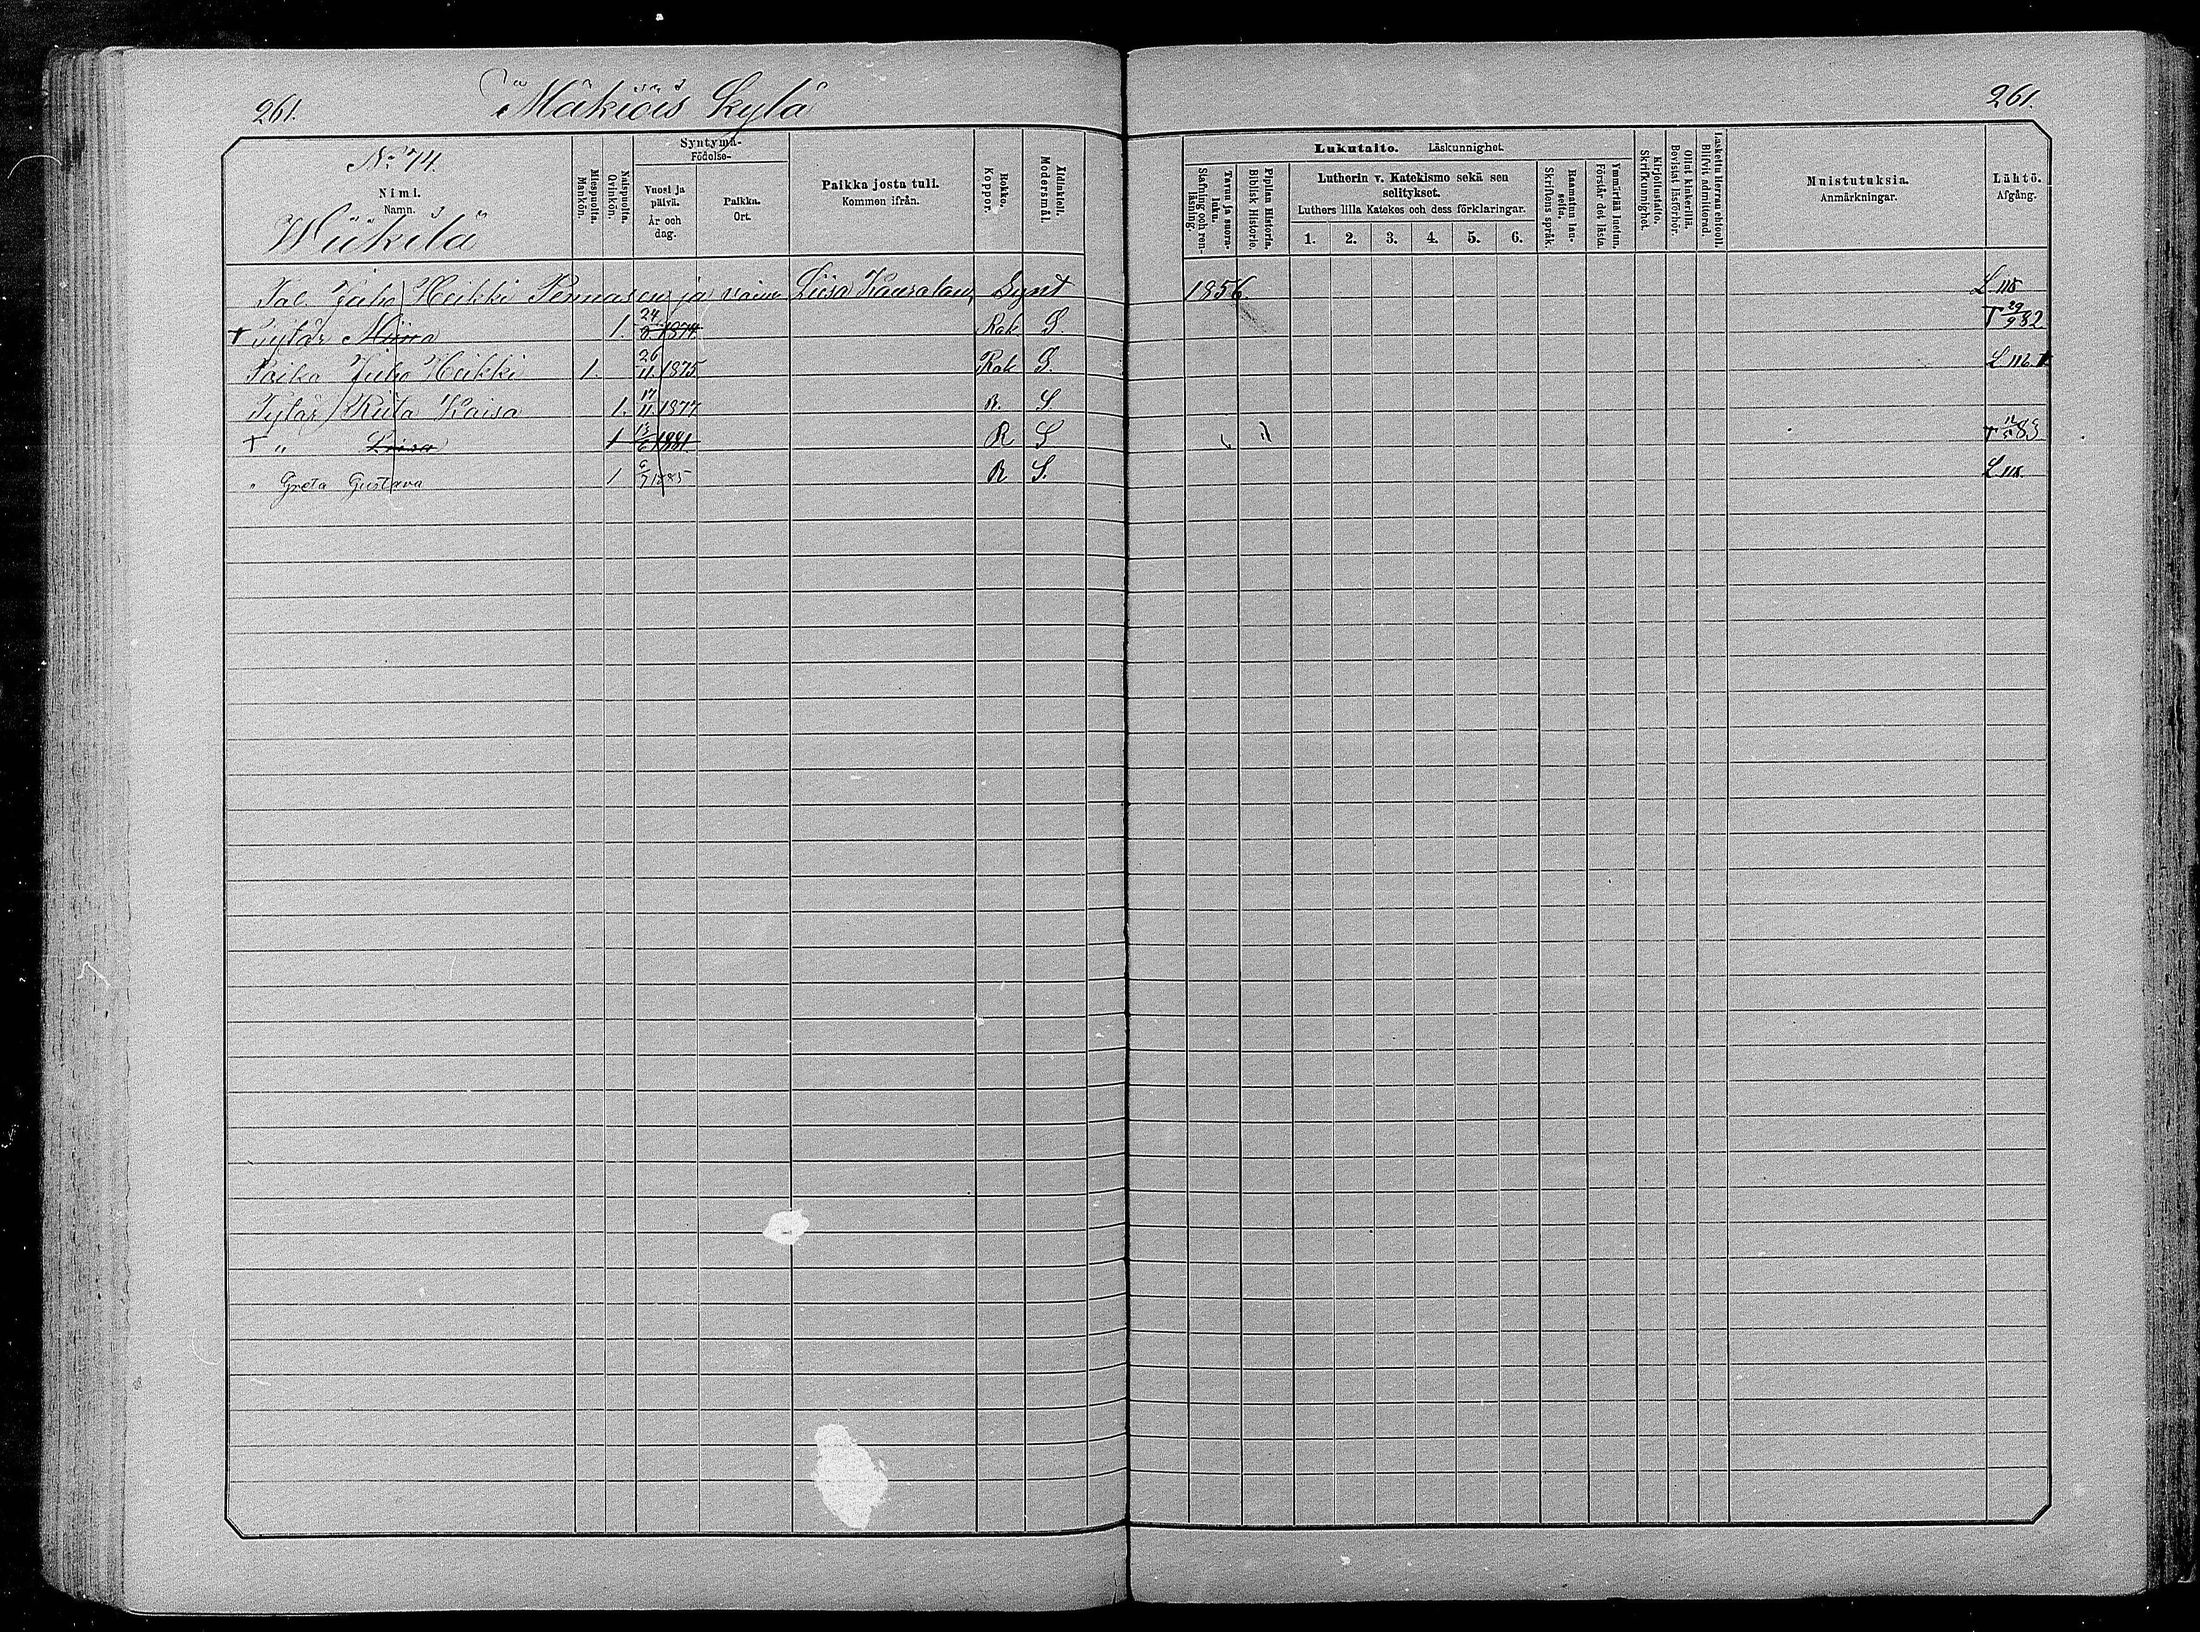 261. Mäkiöis kylä 261.
No 74.
Nimi.
Namn.
Wiikilä
Miespuolta.
Mankön.
Naispuolta.
Qvinkön.
Syntymä-
Födelse-
Vuosi ja päivä.
År och dag.
Paikka.
Ort.
Paikka josta tuli.
Kommen ifrån.
Rokko.
Koppor.
Äidinkieli.
Modersmål.
Lukutaito. Läskunnighet.
Tavuu ja suora-luku.
Stafning och ren-läsning.
Piplian Historia.
Biblisk Historie.
Lutherin v. Katekismo sekä sen selitykset.
Luthers lilla Katekes och dess förklaringar.
1. 2. 3. 4. 5. 6.
Raamatun lau-seita.
Skriftens språk.
Ymmärtää luetun.
Förstår det lästa.
Kirjoitustaito.
Skrifkunnighet.
Ollut kinkerillä.
Bevistat läsförhör.
Laskettu Herran ehtooll.
Blifvit admitterad.
Muistutuksia.
Anmärkningar.
Lähtö.
Afgång.
Tal. Juho Heikki Pennasen ja vaimo Liisa Synt 1856 L 118
† Tytär Miina 1. 24/8 1874 Rok S. † 29/9 82
Poika Juho Heikki 1. 26/11 1875 Rok S. L. 116.
Tytär Riita Kaisa 1. 17/11 1877 R. S.
† " Liisa 1 13/6 1881. R S † 12/5 83
" Greta Gustava 1 6/7 1885 R S. L 118.